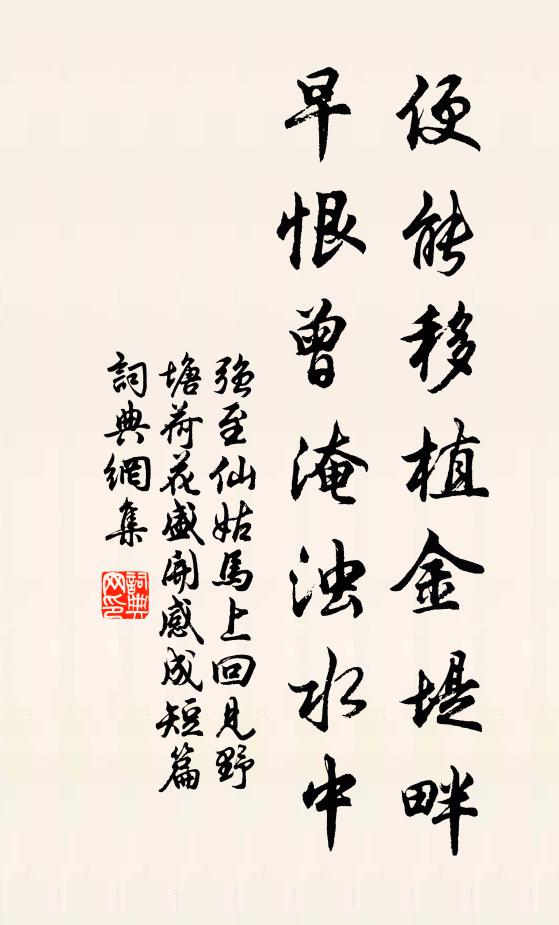 便能移植金堤畔
早恨曾淹浊水中
强至仙姑馬上回見野
塘荷花盛開感成短篇
詞典網集
詞典
网印